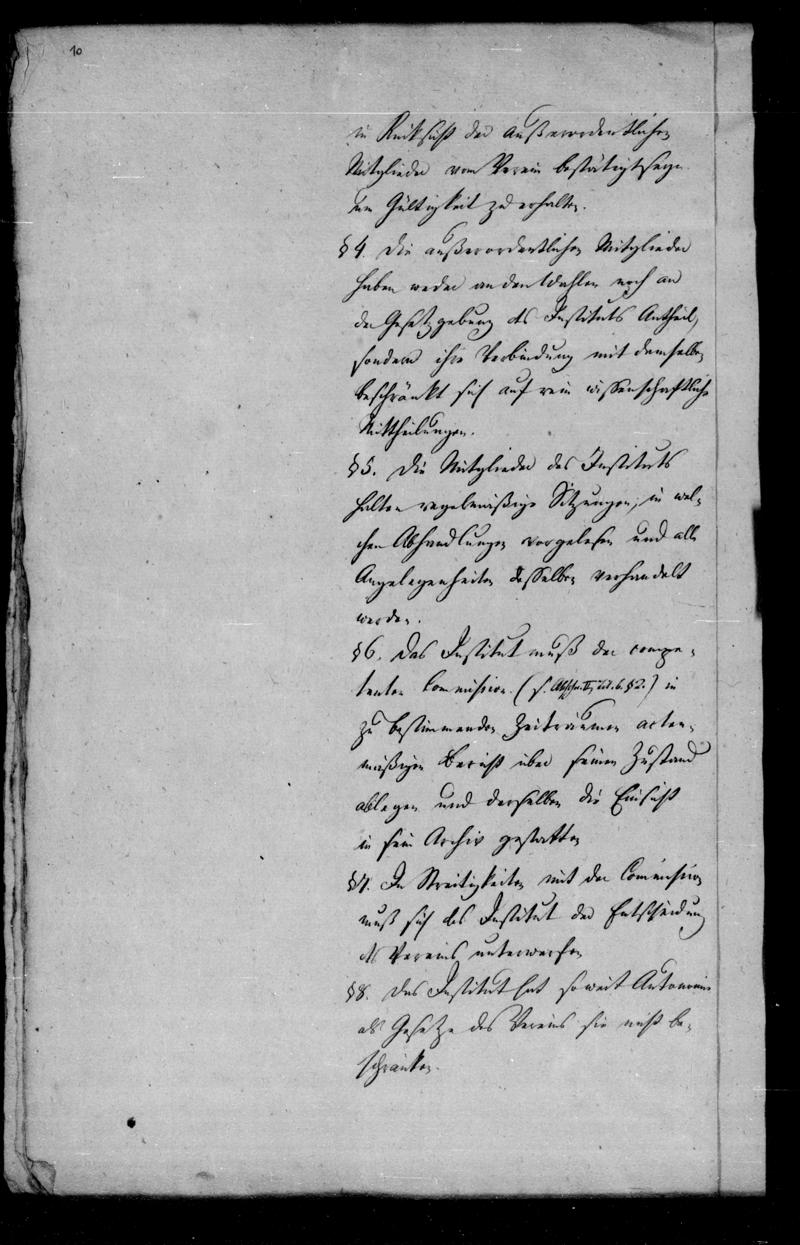 10
in Rücksicht der außerordentlichen
Mitglieder vom Verein bestätigt seyn
um Gültigkeit zu erhalten.
§ 4. Die außerordentlichen Mitglieder
haben weder an den Wahlen noch an
der Gesetzgebung des Instituts Antheil,
sondern ihre Verbindung mit demselben
beschränkt sich auf rein wissenschaftliche
Mittheilungen.
§ 5. Die Mitglieder des Instituts
halten regelmäßige Sitzungen, in wel-
chen Abhandlungen vorgelesen und alle
Angelegenheiten desselben verhandelt
werden.
§ 6. Das Institut muß der compe-
tenten Commission (s. Abschn. II, Tit. 6. § 2.) in
zu bestimmenden Zeiträumen acten-
mäßigen Bericht über seinen Zustand
ablegen und derselben die Einsicht
in sein Archiv gestatten
§ 7. In Streitigkeiten mit der Commission
muß sich das Institut der Entscheidung
des Vereins unterwerfen
§ 8. Das Institut hat soweit Autonomie
als Gesetze des Vereins sie nicht be-
schränken.